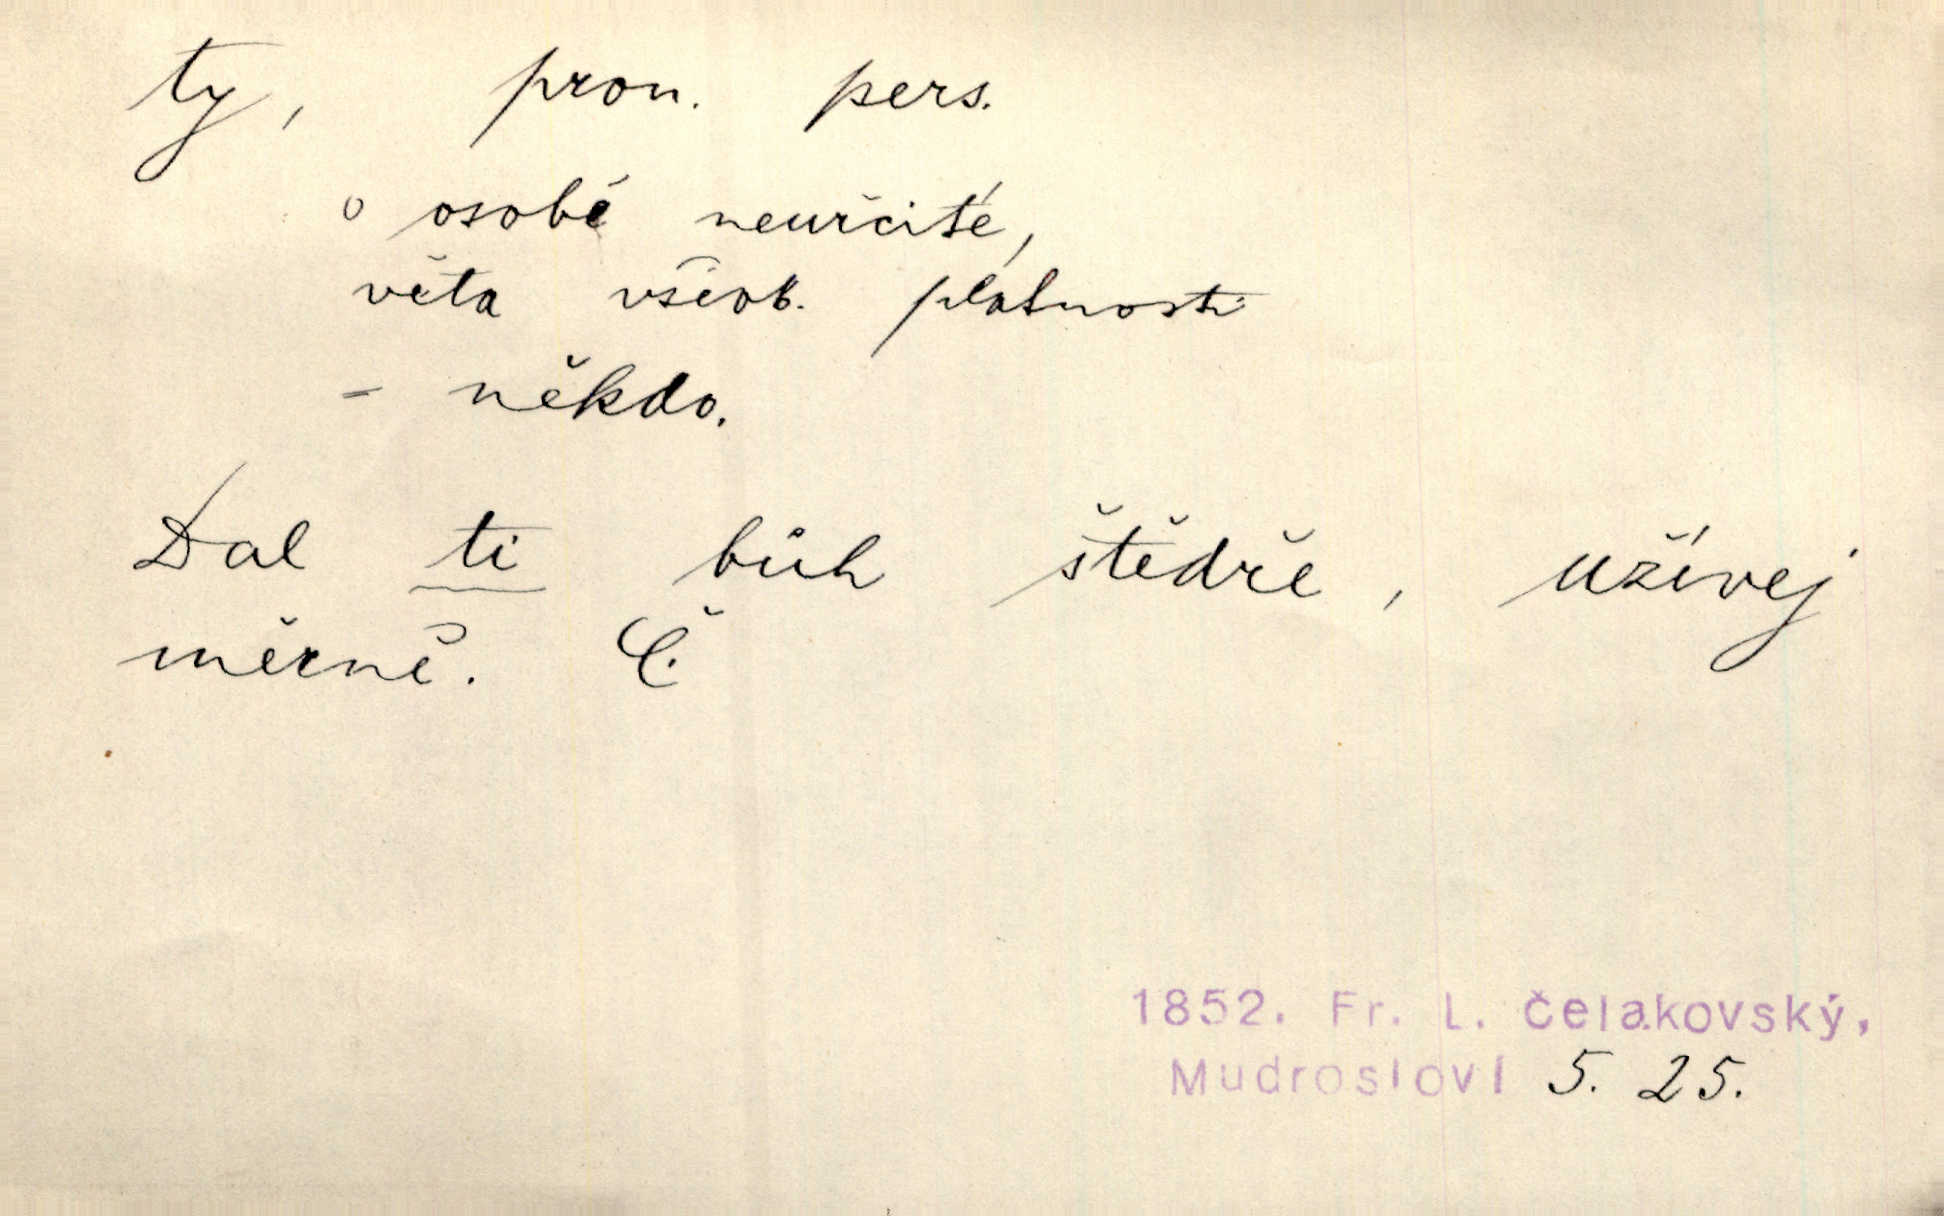 ty, pron. pers.
o osobě neurčité,
věta všeob. platnosti
- někdo.
Dal ti bůh štědře, užívej
měrně. Č.
1852. Fr. L. Čelakovský,
Mudrosloví 5. 25.